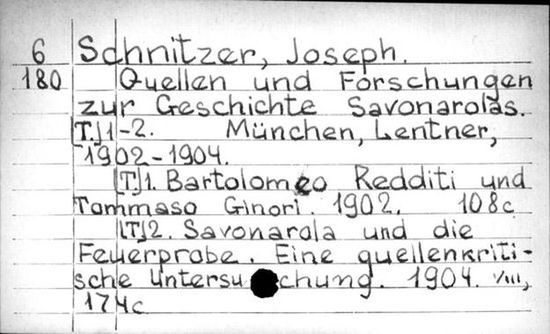 6 Schnitzer, Joseph.
180 Quellen und Forschungen
zur Geschichte Savonarolas.
[T.] 1-2. München, Lentner,
1902-1904.
[T.] 1. Bartolomeo Redditi und
Tommaso Ginori. 1902. 108c
[T.] 2. Savonarola und die
Feuerprobe. Eine quellenkriti-
sche Untersuchung. 1904. VIII,
174c